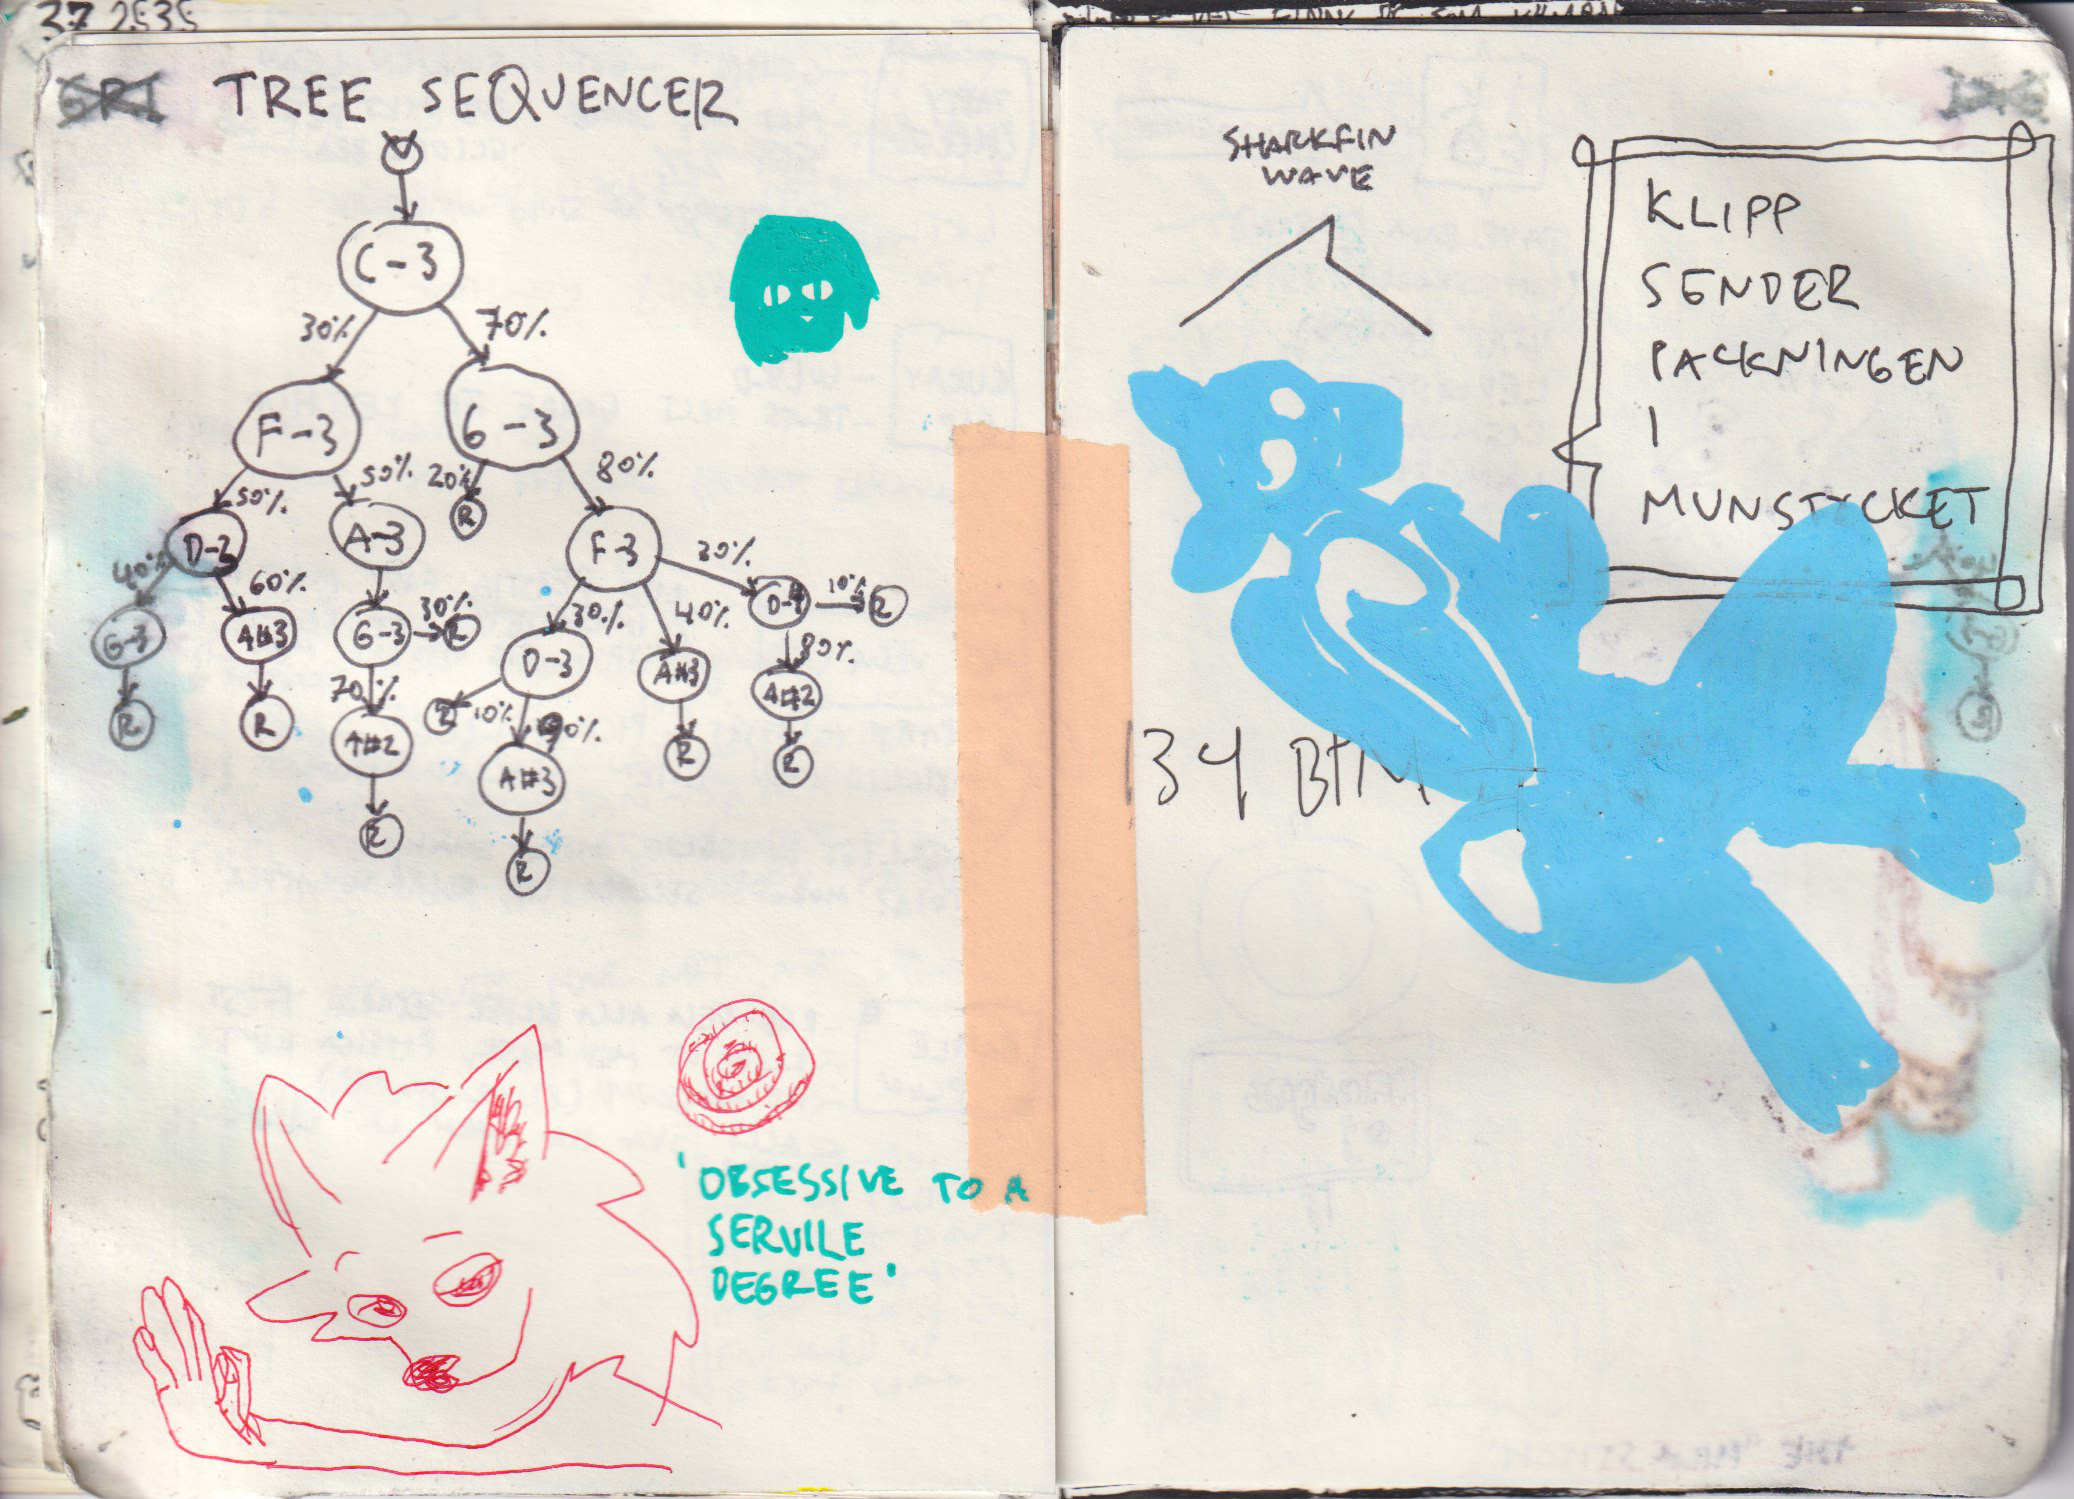 37 2535
TREE SEQUENCER
C-3
30% 70%
F-3 G-3
50% 50% 20% 80%
D-3 A-3 R F-3
40% 60% 30% 40% 30%
G-3 A#3 G-3 30% R D-3 A#3 D-4 10% R
R R 70% 10% 90% R 80%
A#2 R A#3 A#2
R R R
'OBSESSIVE TO A
SERVILE
DEGREE'
SHARKFIN
WAVE
KLIPP
SENDER
PACKNINGEN
I
MUNSTYCKET
134 BPM